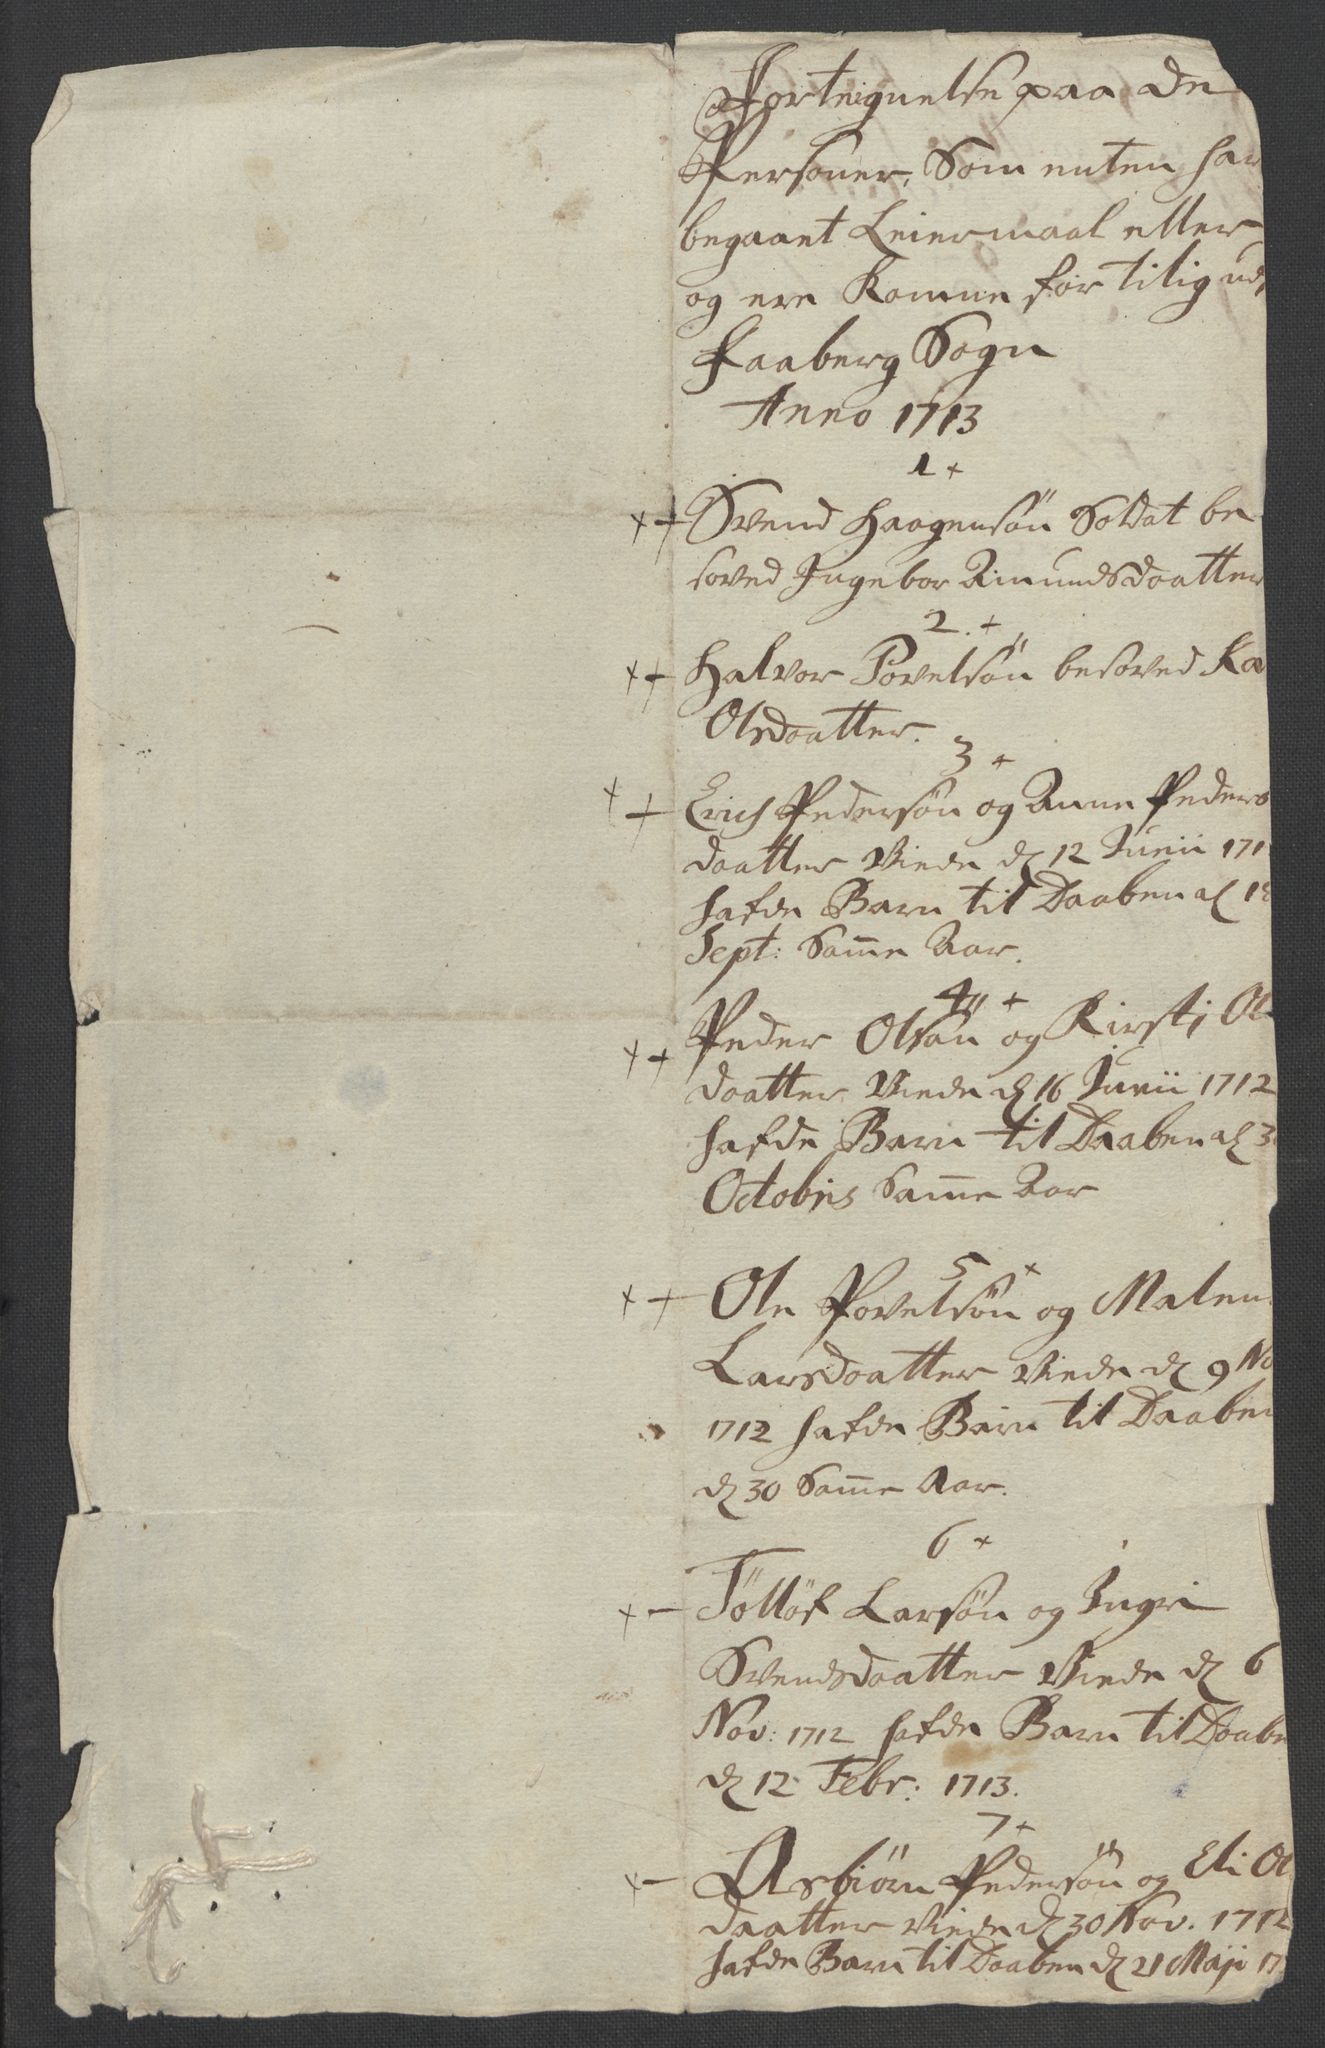 Forteignelse paa de
Personer, Som enten har
begaaet Leiermaal eller
og ere Komne for tilig ud
Faaberg Sogn
Anno 1713
1 +
Svend Haagensön Soldat be
soved Ingebor Amundsdaatter
2. +
Halvor Povelsön besoved Ka
Olsdaatter.
3 +
Erich Pedersön og Anne Peders
daatter Viede d 12 Junii 171
hafde Barn til Daaben d 18
Sept: Samme Aar.
4 +
Peder Olsön og Kirsti Ol
daatter Viede d 16 Junii 1712
hafde Barn til Daaben d 3
Octobris Samme Aar
5 +
Ole Povelsön og Malen
Larsdaatter Viede d 9 No
1712 hafde Barn til Daaben
d 30 Samme Aar.
6 +
Töllöf Larsön og Ingri
Svendsdaatter Viede d 6
Nov: 1712 hafde Barn til Daabe
d 12 Febr: 1713.
7 +
Asbiörn Pedersön og Eli Ol
daatter Viede d 30 Nov. 1712
hafde Barn til Daaben d 21 Maji 17